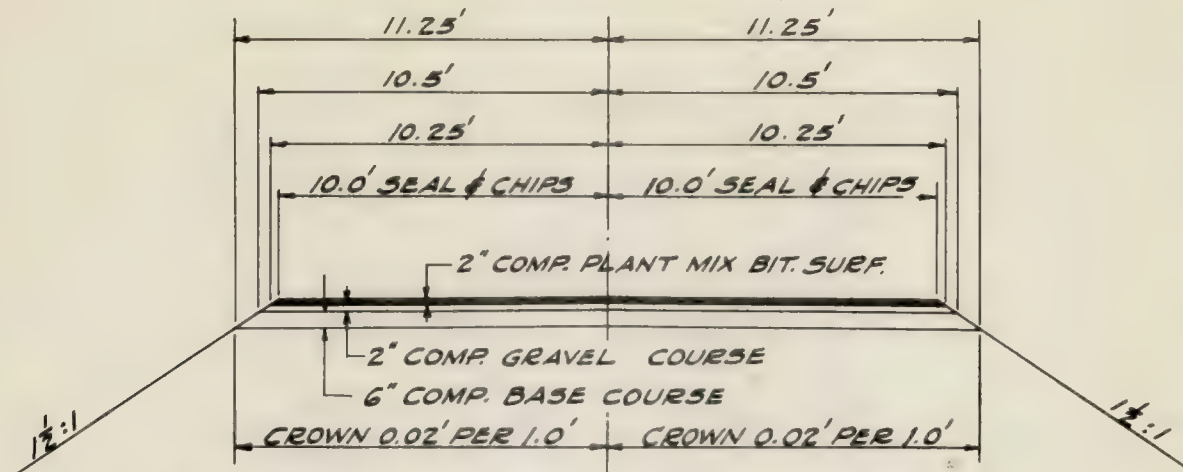 11.25' 11.25'
10.5' 10.5'
10.25' 10.25'
10.0' SEAL & CHIPS 10.0' SEAL & CHIPS
2" COMP. PLANT MIX BIT. SURF.
2" COMP. GRAVEL COURSE
6" COMP. BASE COURSE
1½:1 1½:1
CROWN 0.02' PER 1.0' CROWN 0.02' PER 1.0'